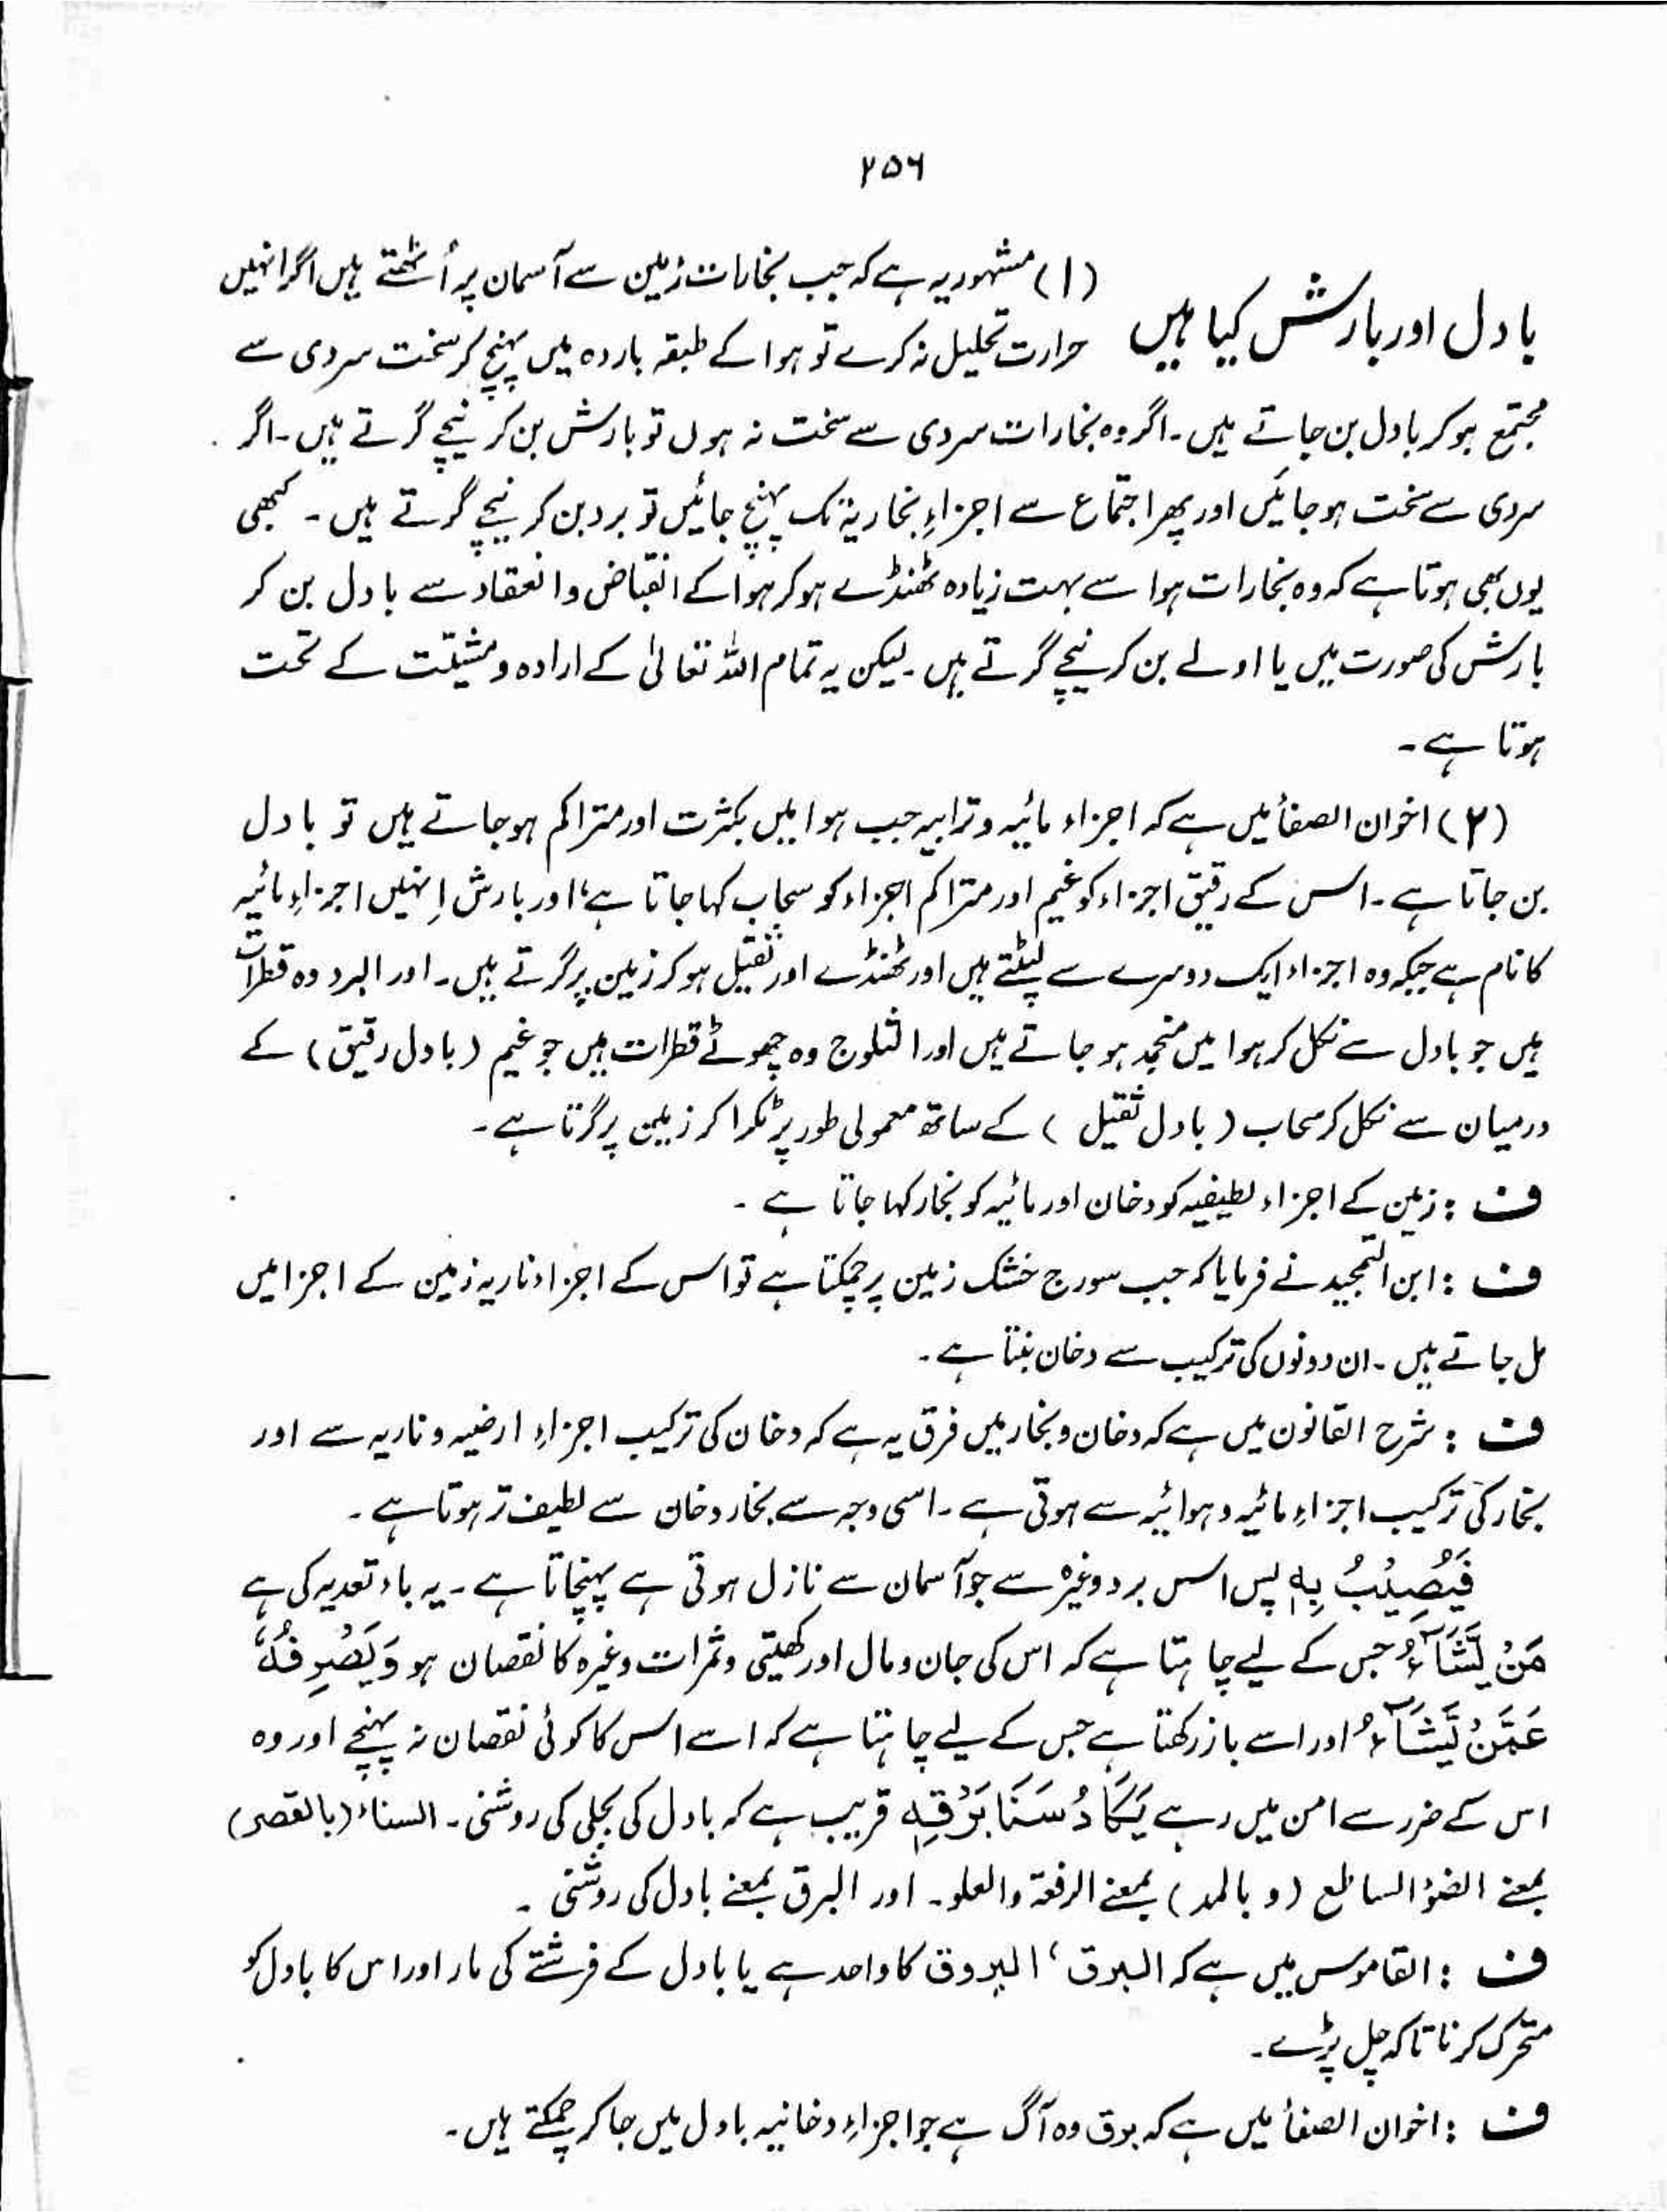 ۲۵۶
بادل اور بارش کیا ہیں
(۱) مشہور یہ ہے کہ جب بخارات زمین سے آسمان پر اُٹھتے ہیں اگر انہیں
حرارت تحلیل نہ کرے تو ہوا کے طبقہ باردہ میں پہنچ کر سخت سردی سے
مجتمع ہو کر بادل بن جاتے ہیں۔ اگر وہ بخارات سردی سے سخت نہ ہوں تو بارش بن کر نیچے گرتے ہیں۔ اگر
سردی سے سخت ہو جائیں اور پھر اجتماع سے اجزاءِ بخاریۃ تک پہنچ جائیں تو برد بن کر نیچے گرتے ہیں۔ کبھی
یوں بھی ہوتا ہے کہ وہ بخارات ہوا سے بہت زیادہ ٹھنڈے ہو کر ہوا کے انقباض و انعقاد سے بادل بن کر
بارش کی صورت میں یا اولے بن کر نیچے گرتے ہیں۔ لیکن یہ تمام اللہ تعالیٰ کے ارادہ و مشیّت کے تحت
ہوتا ہے۔
(۲) اخوان الصفأ میں ہے کہ اجزاء مائیہ و ترابیہ جب ہوا میں بکثرت اور متراکم ہو جاتے ہیں تو بادل
بن جاتا ہے۔ اس کے رقیق اجزاء کو غیم اور متراکم اجزاء کو سحاب کہا جاتا ہے، اور بارش اِنہیں اجزاءِ مائیہ
کا نام ہے جبکہ وہ اجزاء ایک دوسرے سے لپٹتے ہیں اور ٹھنڈے اور ثقیل ہو کر زمین پر گرتے ہیں۔ اور البرد وہ قطرات
ہیں جو بادل سے نکل کر ہوا میں منجمد ہو جاتے ہیں اور الثلوج وہ چھوٹے قطرات ہیں جو غیم (بادل رقیق) کے
درمیان سے نکل کر سحاب (بادل ثقیل) کے ساتھ معمولی طور پر ٹکرا کر زمین پر گرتا ہے۔
ف : زمین کے اجزاء لطیفیہ کو دخان اور مائیہ کو بخار کہا جاتا ہے۔
ف : ابن التمجید نے فرمایا کہ جب سورج خشک زمین پر چمکتا ہے تو اس کے اجزاء ناریہ زمین کے اجزا میں
مل جاتے ہیں۔ ان دونوں کی ترکیب سے دخان بنتا ہے۔
ف : شرح القانون میں ہے کہ دخان و بخار میں فرق یہ ہے کہ دخان کی ترکیب اجزاءِ ارضیہ و ناریہ سے اور
بخار کی ترکیب اجزاءِ مائیہ و ہوائیہ سے ہوتی ہے۔ اسی وجہ سے بخار دخان سے لطیف تر ہوتا ہے۔
فَیُصِیْبُ بِہٖ پس اس برد وغیرہ سے جو آسمان سے نازل ہوتی ہے پہنچاتا ہے۔ یہ باء تعدیہ کی ہے
مَنْ یَّشَآءُ جس کے لیے چاہتا ہے کہ اس کی جان و مال اور کھیتی و ثمرات وغیرہ کا نقصان ہو وَیَصْرِفُہٗ
عَمَّنْ یَّشَآءُ اور اسے باز رکھتا ہے جس کے لیے چاہتا ہے کہ اسے اس کا کوئی نقصان نہ پہنچے اور وہ
اس کے ضرر سے امن میں رہے یَکَادُ سَنَا بَرْقِہٖ قریب ہے کہ بادل کی بجلی کی روشنی۔ السناء (بالقصر)
بمعنے الضؤ الساطع (و بالمد) بمعنے الرفعۃ والعلو۔ اور البرق بمعنے بادل کی روشنی۔
ف : القاموس میں ہے کہ البرق، البروق کا واحد ہے یا بادل کے فرشتے کی مار اور اس کا بادل کو
متحرک کرنا تاکہ چل پڑے۔
ف : اخوان الصفأ میں ہے کہ برق وہ آگ ہے جو اجزاءِ دخانیہ بادل میں جا کر چمکتے ہیں۔